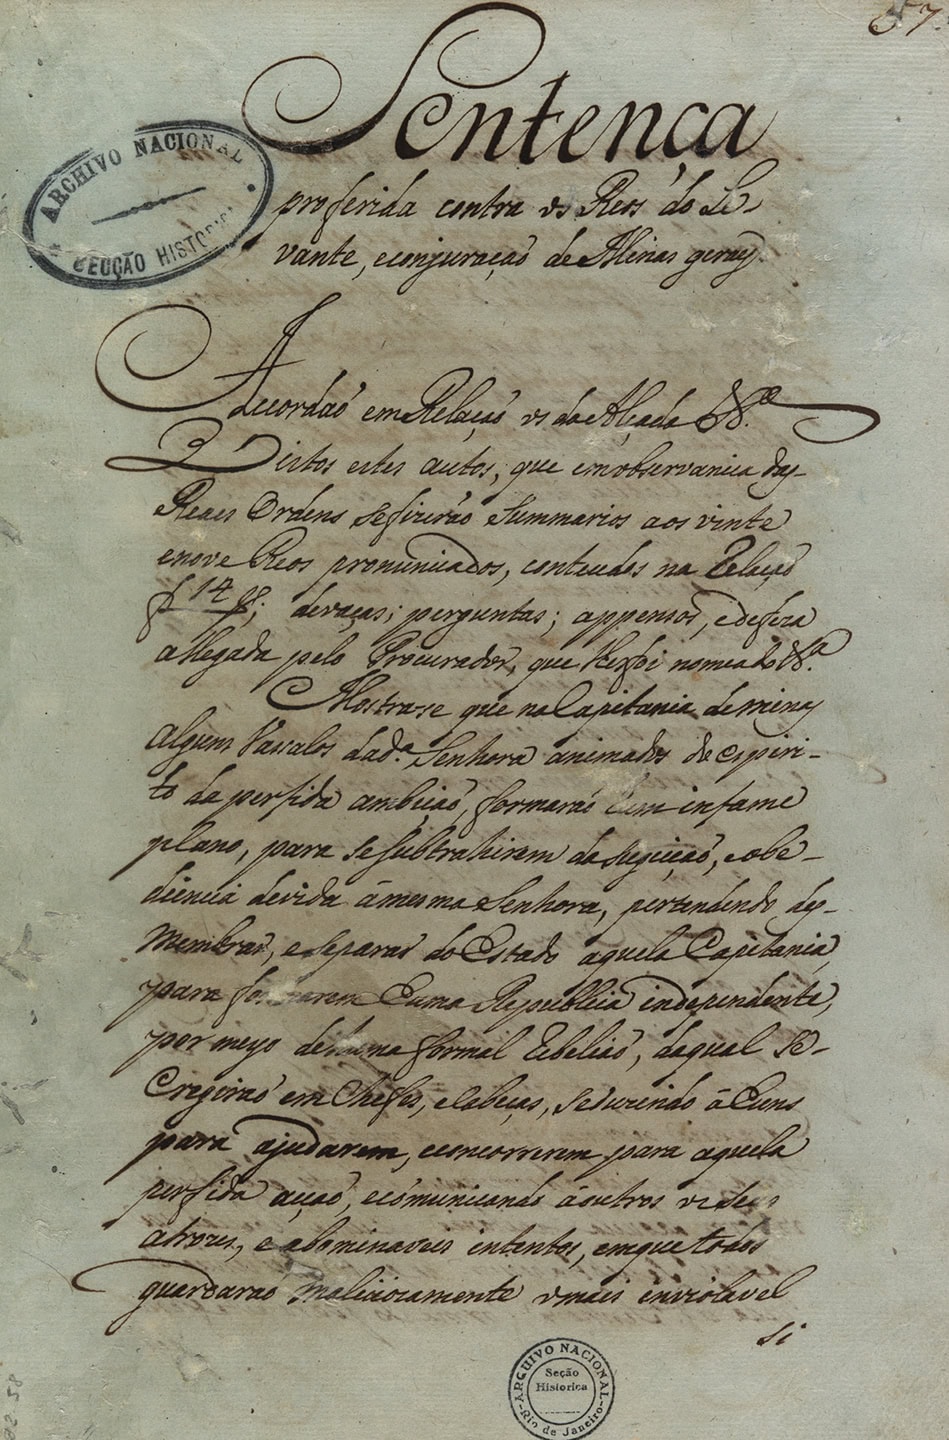 67.
Sentença
ARCHIVO NACIONAL
SECÇÃO HISTORICA
proferida contra os Reos do Le-
vante, econjuração de Minas geraes.
Accordaõ em Relaçaõ os da Alçada &ª
Vistos estes autos, que em observancia das
Reaes Ordens se fizeraõ Summarios aos vinte
enove Reos pronunciados, conteudos na Relaçaõ
f 14 devaças; perguntas; appensos, edefeza
allegada pelo Procurador, que lhe foi nomeado &ª
Mostra-se que na Capitania de minas
alguns Vasalos dadª Senhora animados do espiri-
to da perfida ambiçaõ, formaraõ hum infame
plano, para se subtrahirem da sugeiçaõ, eobe-
diencia devida á mesma Senhora, pertendendo des-
membrar, e separar do Estado aquela Capitania,
para formarem huma Republica independente,
por meyo de huma formal rebeliaõ, daqual se
eregiraõ em Chefes, e cabeças, seduzindo á huns
para ajudarem, econcorrerem para aquela
perfida açaõ, ecomunicando áoutros os seus
atrozes, e abominaveis intentos, emque todos
guardaraõ maliciozamente o mais inviolavel
si
ARQUIVO NACIONAL
Seção
Historica
Rio de Janeiro